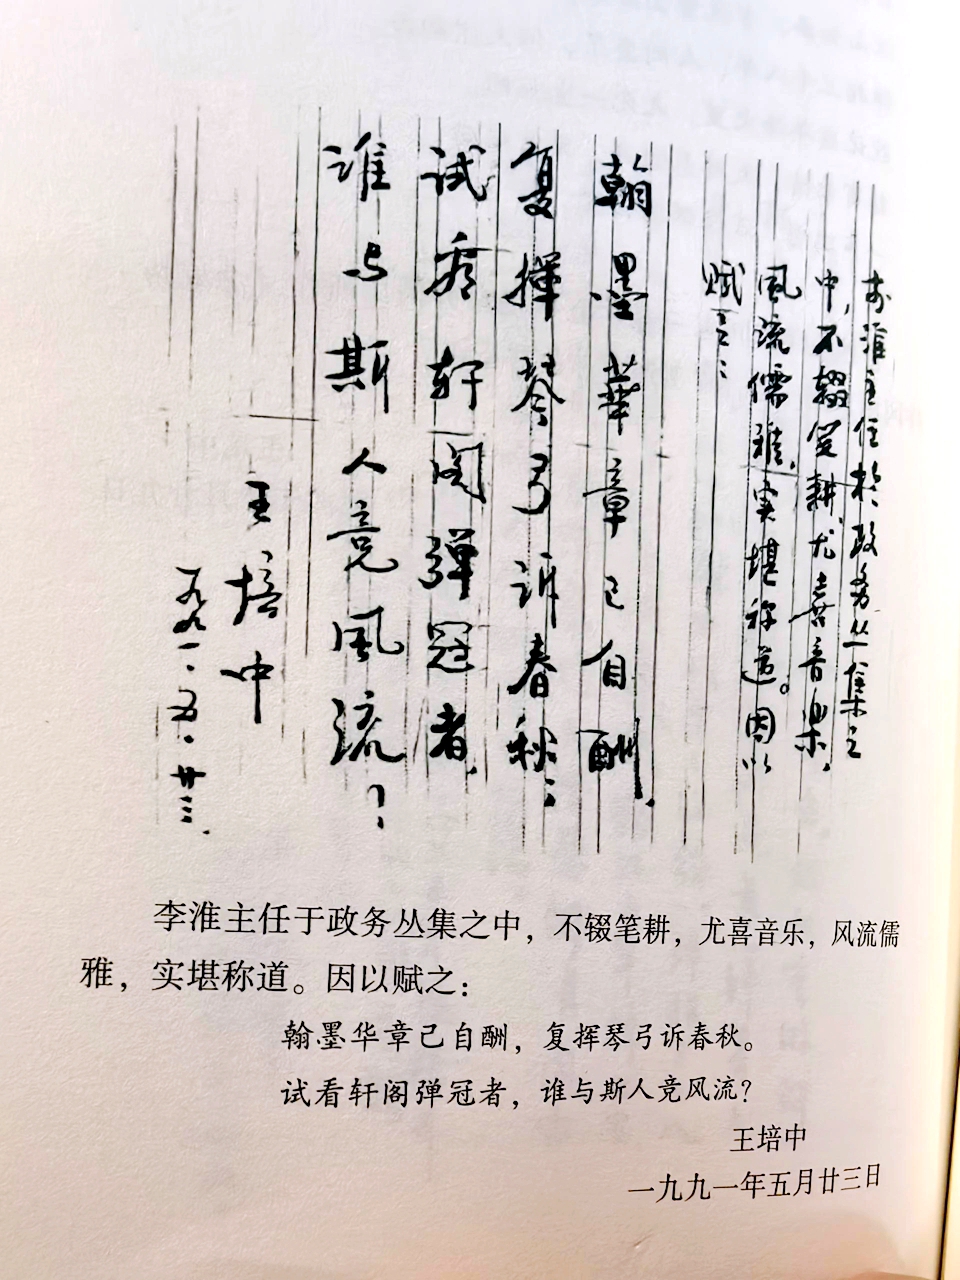 李淮主任於政务丛集之
中，不辍笔耕，尤喜音乐，
風流儒雅，实堪称道。因以
赋之：
翰墨華章已自酬，
复揮琴弓诉春秋；
试看轩阁弹冠者，
谁与斯人竞風流？
王培中
一九九一·五·廿三.
李淮主任于政务丛集之中，不辍笔耕，尤喜音乐，风流儒
雅，实堪称道。因以赋之：
翰墨华章己自酬，复挥琴弓诉春秋。
试看轩阁弹冠者，谁与斯人竞风流？
王培中
一九九一年五月廿三日